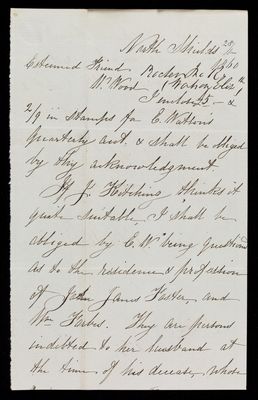 North Shields 20/2
1860
Esteemed Friend
W. Wood
(Watson, Eliz.th)
I enclose 5 - &
2/9 in stamps for E. Watson's
quarterly acct. & shall be obliged
by thy acknowledgment.
If J. Hitching thinks it
quite suitable I shall be
obliged by E. W. being questioned
as to the residence & profession
of John James Foster, and
Wm. Forbes. They are persons
indebted to her husband at
the time of his decease, whose